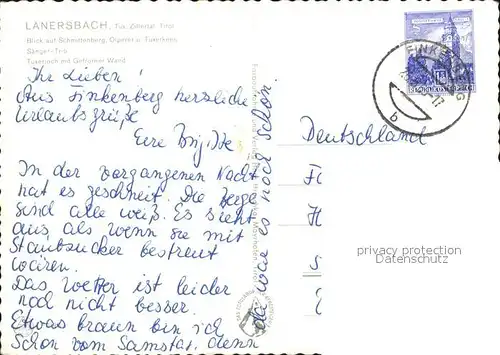 LANERSBACH, Tux, Zillertal, Tirol
Blick auf Schmittenberg, Olperer u. Tuxerhoes
Sänger-Trio
Tuxerjoch mit Gefrorner Wand
Ihr Lieben!
Aus Finkenberg herzliche
Urlaubsgrüße
Eure Brigitte
In der vorgangenen Nacht
hat es geschneit. Die Berge
sind alle weiß. Es sieht
aus, als wenn sie mit
Staubzucker bestreut
wären.
Das Wetter ist leider
noch nicht besser.
Etwas braun bin ich
schon vom Samstag, denn
da war es noch schön.
Deutschland
FINKENBERG
b
privacy protection
Datenschutz